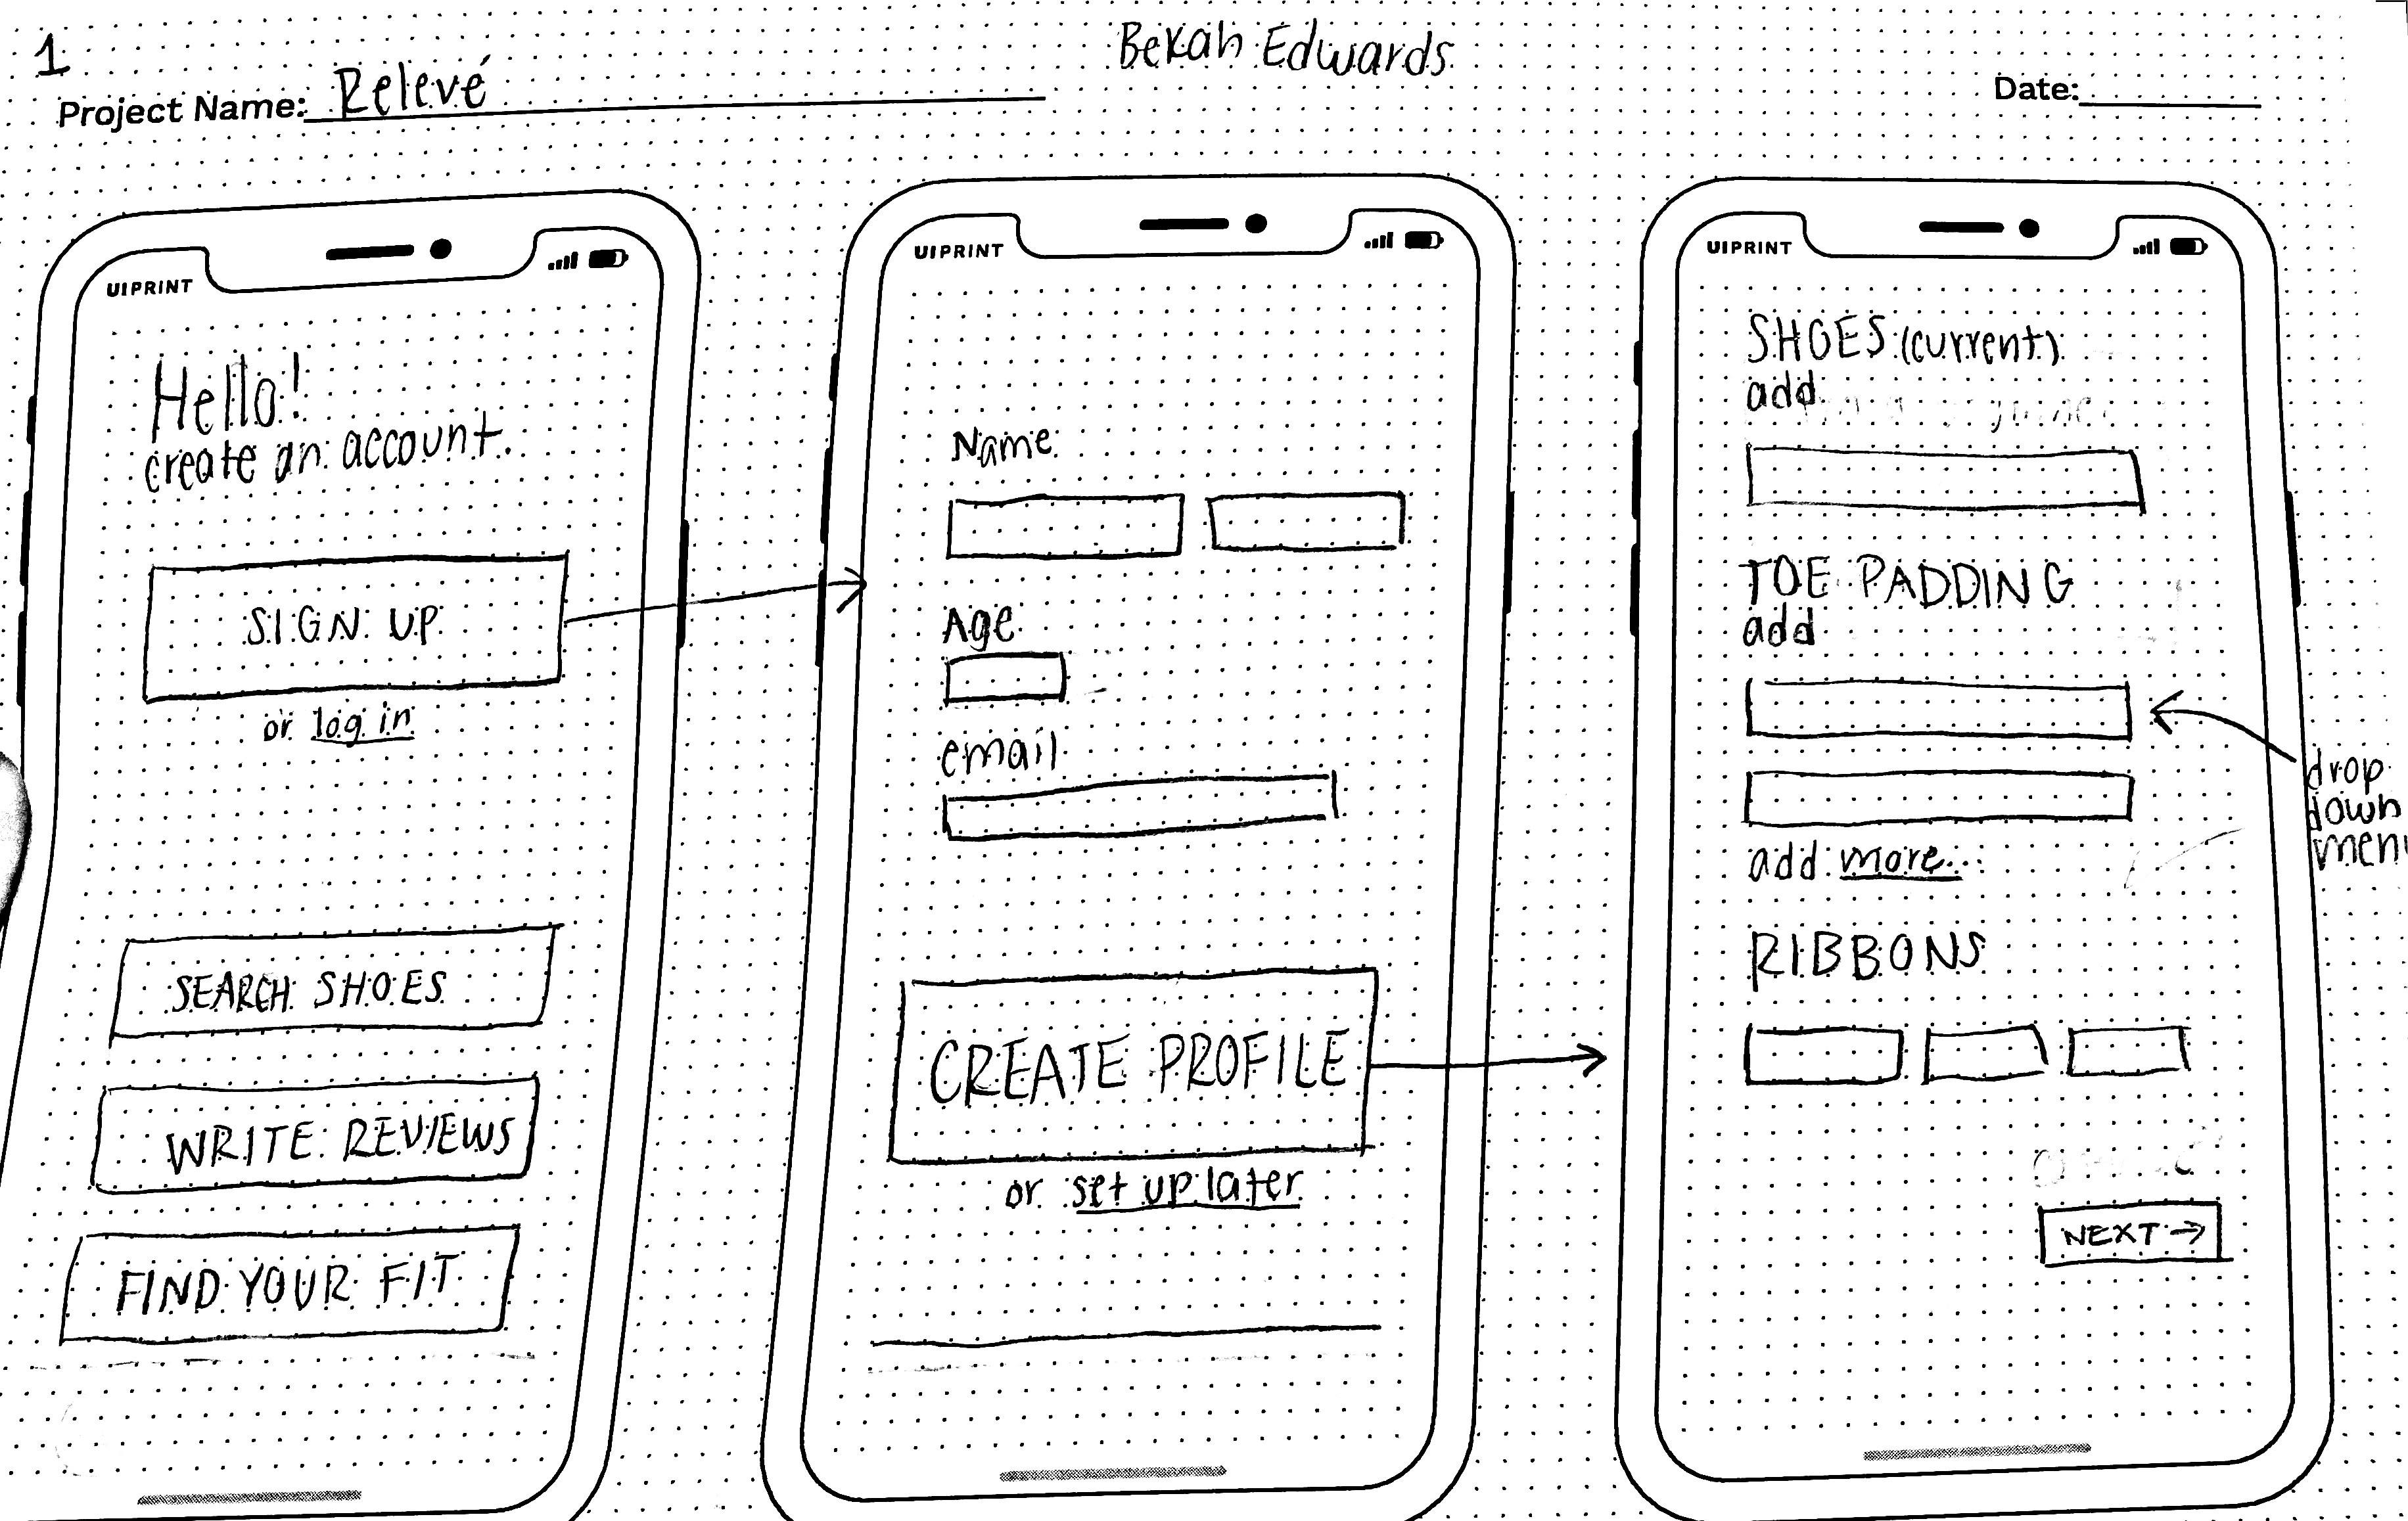 1
Bekah Edwards
Project Name: Relevé
Date:
UIPRINT
Hello!
create an account.
SIGN UP
or log in
SEARCH SHOES
WRITE REVIEWS
FIND YOUR FIT
UIPRINT
Name
Age
email
CREATE PROFILE
or set up later
UIPRINT
SHOES (current)
add
TOE PADDING
add
drop
down
menu
add more...
RIBBONS
NEXT →